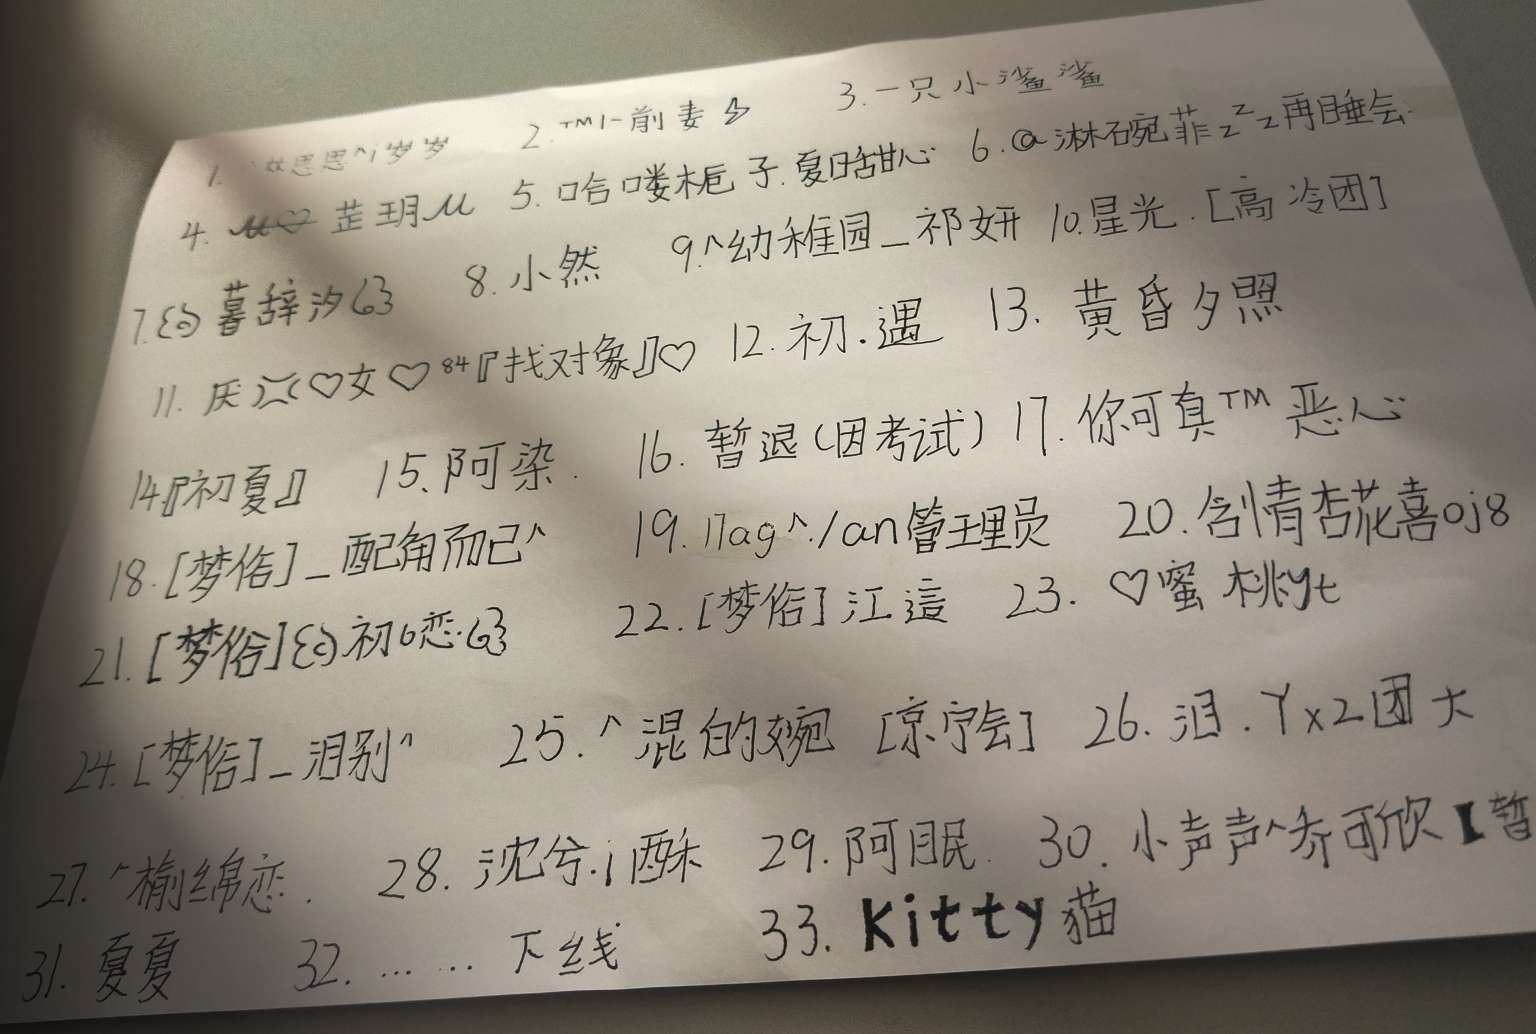 1. 思思^i岁岁 2. ™1-前妻 3. 一只小鲨鲨
4. 芷玥 5. 哈喽栀子.夏日甜心 6. @淋碗菲zzz再睡会.
7. 暮辞汐63 8. 小然 9. ^幼稚园_祁妍 10. 星光.[高冷团]
11. 厌♡女♡84『找对象』♡ 12. 初.遇 13. 黄昏夕照
14『初夏』 15. 阿染. 16. 暂退(因考试) 17. 你可真™恶心
18. [梦俗]_配角而已^ 19. ag^./an管理员 20. 含情杏花喜oj8
21. [梦俗]初6恋.63 22. [梦俗]江這 23. ♡蜜桃yt
24. [梦俗]_泪别^ 25. ^混的婉 [京宁会] 26. 泪.Yx2团大
27. ^榆绵恋. 28. 沈兮.i酥 29. 阿眠. 30. 小声声^乔可欣【暂
31. 夏夏 32. …… 下线 33. Kitty猫